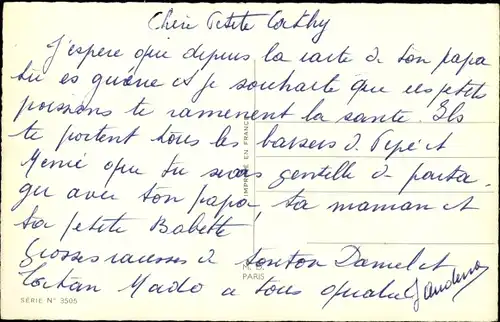 Chère Petite Cathy
J'espère que depuis la carte de ton papa
tu es guérie et je souhaite que ces petits
poissons te ramenent la santé. Ils
te portent tous les baisers de Pepé et
Memé que tu seras gentille de parta-
ger avec ton papa, ta maman et
ta petite Babette!
Grosses caresses de tonton Daniel et
tatan Mado à tous quatre
IMPRIMÉ EN FRANCE
M. D.
PARIS
SERIE N° 3505